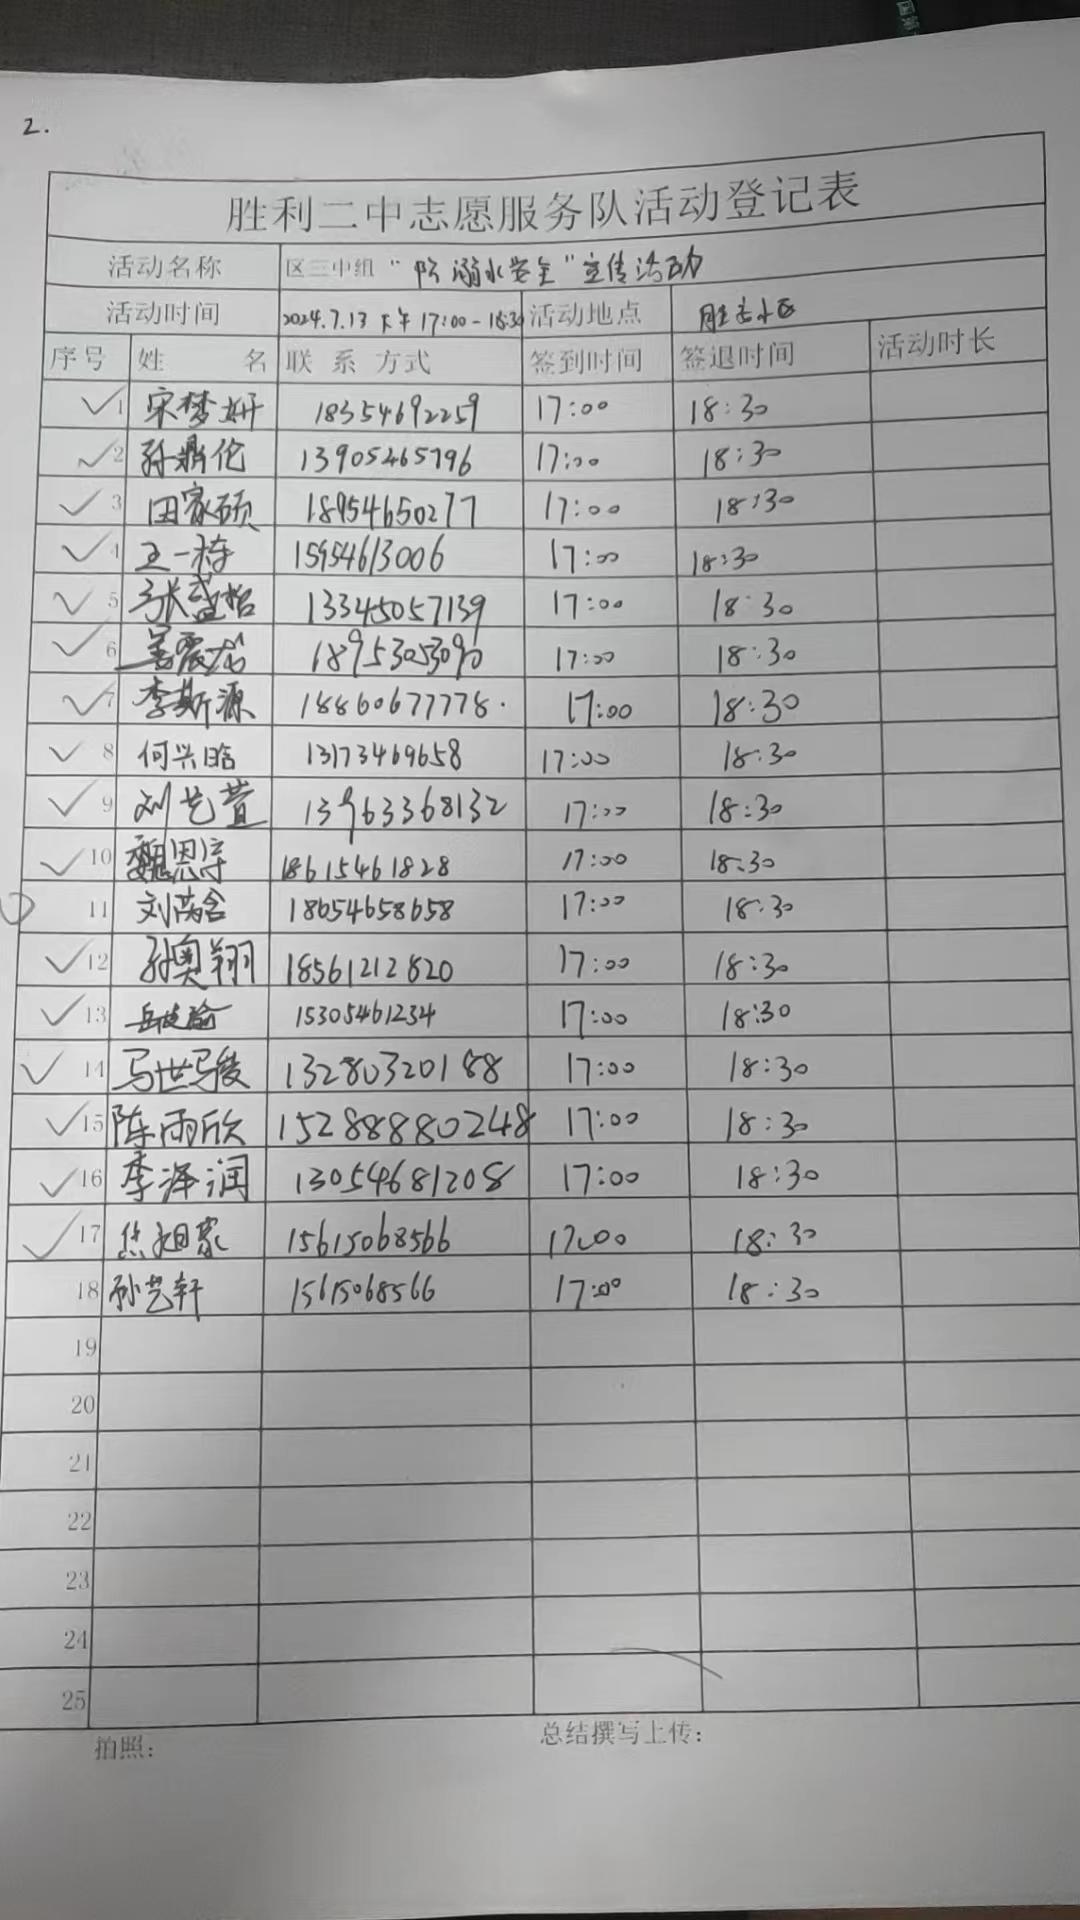 2.
胜利二中志愿服务队活动登记表
活动名称 区三中组“防溺水安全”宣传活动
活动时间 2024.7.13 下午17:00-18:30 活动地点 胜志小区
序号 姓名 联系方式 签到时间 签退时间 活动时长
1 宋梦妍 18354692259 17:00 18:30
2 孙鼎伦 13905465796 17:00 18:30
3 田家硕 18954650277 17:00 18:30
4 王一栋 15954613006 17:00 18:30
5 张盛 13345057139 17:00 18:30
6 姜震 18953053090 17:00 18:30
7 李斯源 18860677778 17:00 18:30
8 何兴晗 13173469658 17:00 18:30
9 刘艺萱 13963368132 17:00 18:30
10 魏恩淳 18615461828 17:00 18:30
11 刘芮含 18654658658 17:00 18:30
12 孙奥翔 18561212820 17:00 18:30
13 岳 15305461234 17:00 18:30
14 马世骏 13280320188 17:00 18:30
15 陈雨欣 15288880248 17:00 18:30
16 李泽润 13054681208 17:00 18:30
17 15615068566 17:00 18:30
18 孙艺轩 15615068566 17:00 18:30
19
20
21
22
23
24
25
拍照： 总结撰写上传：